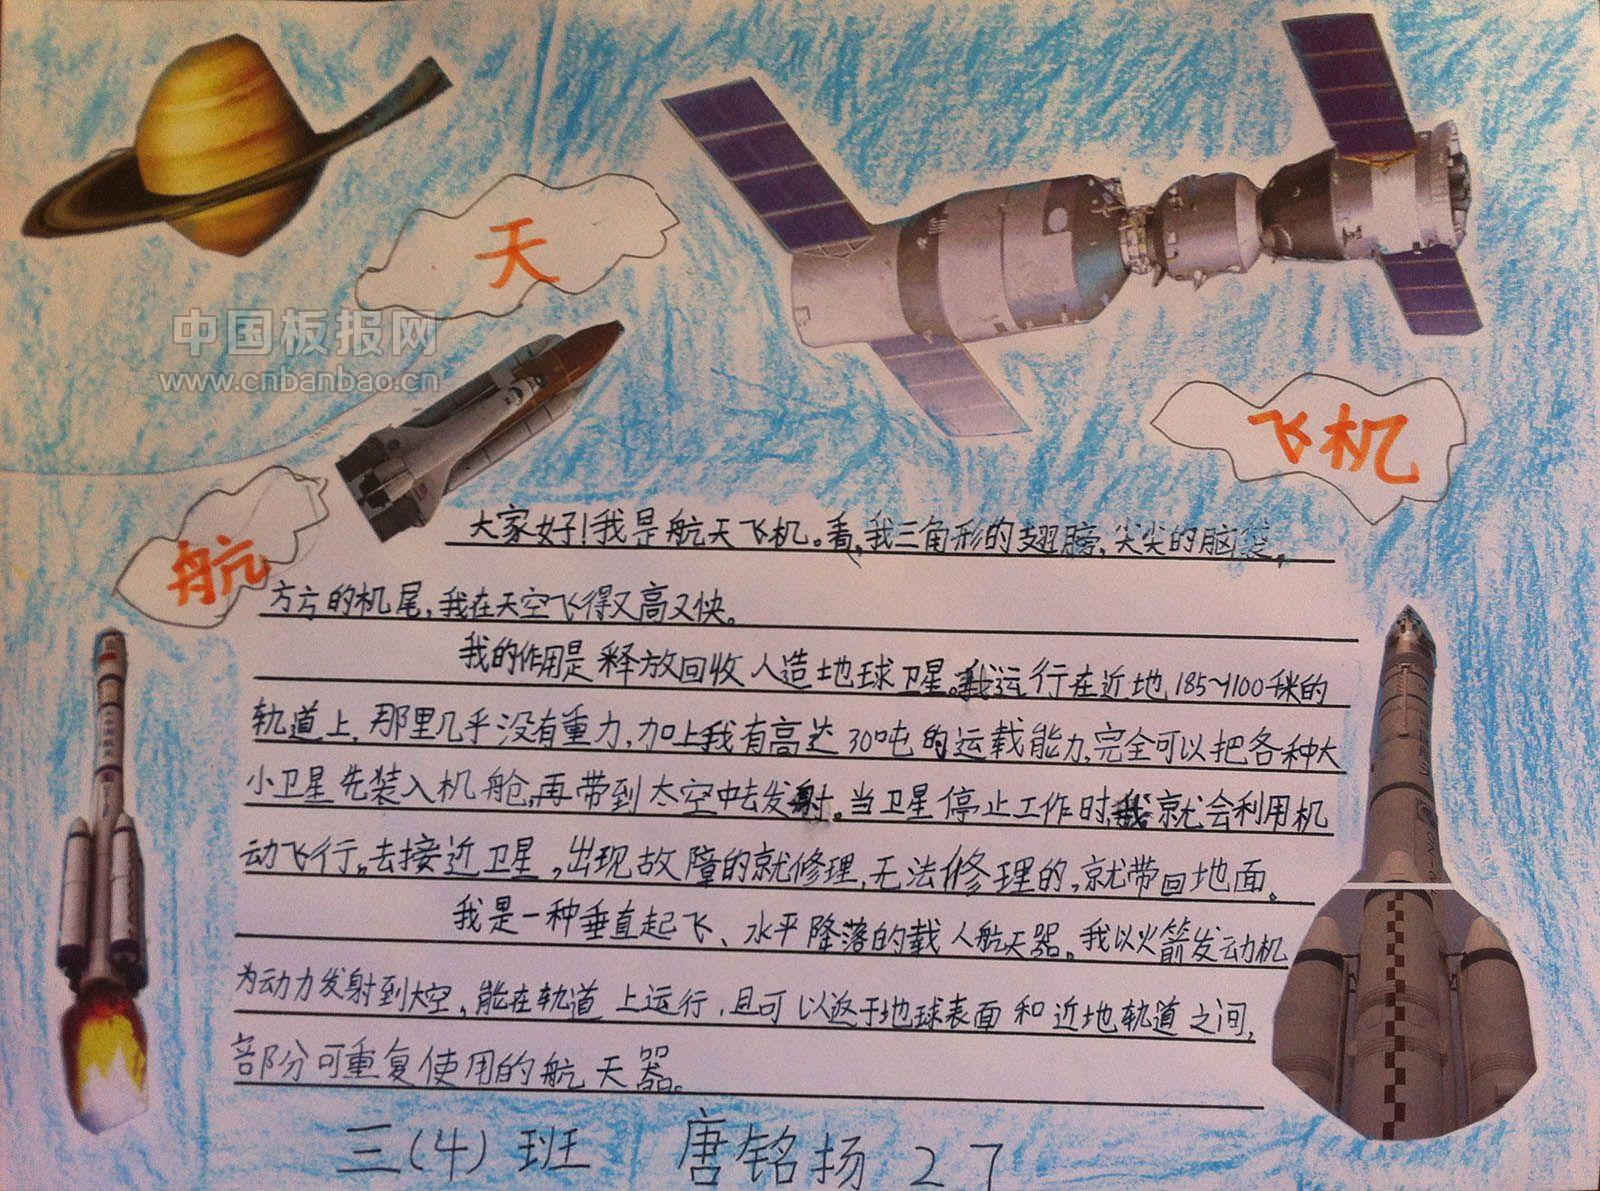 天
中国板报网
www.cnbanbao.cn
飞机
航
大家好!我是航天飞机。看,我三角形的翅膀,尖尖的脑袋,
方方的机尾,我在天空飞得又高又快。
我的作用是释放回收人造地球卫星。我运行在近地185~1100千米的
轨道上,那里几乎没有重力,加上我有高达30吨的运载能力,完全可以把各种大
小卫星先装入机舱,再带到太空中去发射。当卫星停止工作时,我就会利用机
动飞行。去接近卫星,出现故障的就修理,无法修理的,就带回地面。
我是一种垂直起飞、水平降落的载人航天器。我以火箭发动机
为动力发射到太空,能在轨道上运行,且可以返于地球表面和近地轨道之间,
部分可重复使用的航天器。
三(4)班 唐铭扬 27